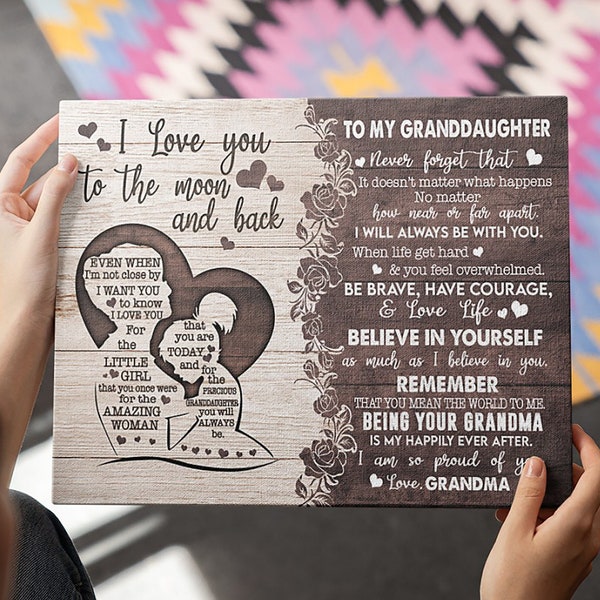 I Love you
to the moon
and back
EVEN WHEN
I'm not close by
I WANT YOU
to know
I LOVE YOU
For
the
LITTLE
GIRL
that you once were
for the
AMAZING
WOMAN
that
you are
TODAY
and
for
the
PRECIOUS
GRANDDAUGHTER
you will
ALWAYS
be.
TO MY GRANDDAUGHTER
Never forget that
It doesn't matter what happens
No matter
how near or far apart.
I WILL ALWAYS BE WITH YOU.
When life get hard
& you feel overwhelmed.
BE BRAVE, HAVE COURAGE,
& Love Life
BELIEVE IN YOURSELF
as much as I believe in you.
REMEMBER
THAT YOU MEAN THE WORLD TO ME.
BEING YOUR GRANDMA
IS MY HAPPILY EVER AFTER.
I am so proud of
Love, GRANDMA